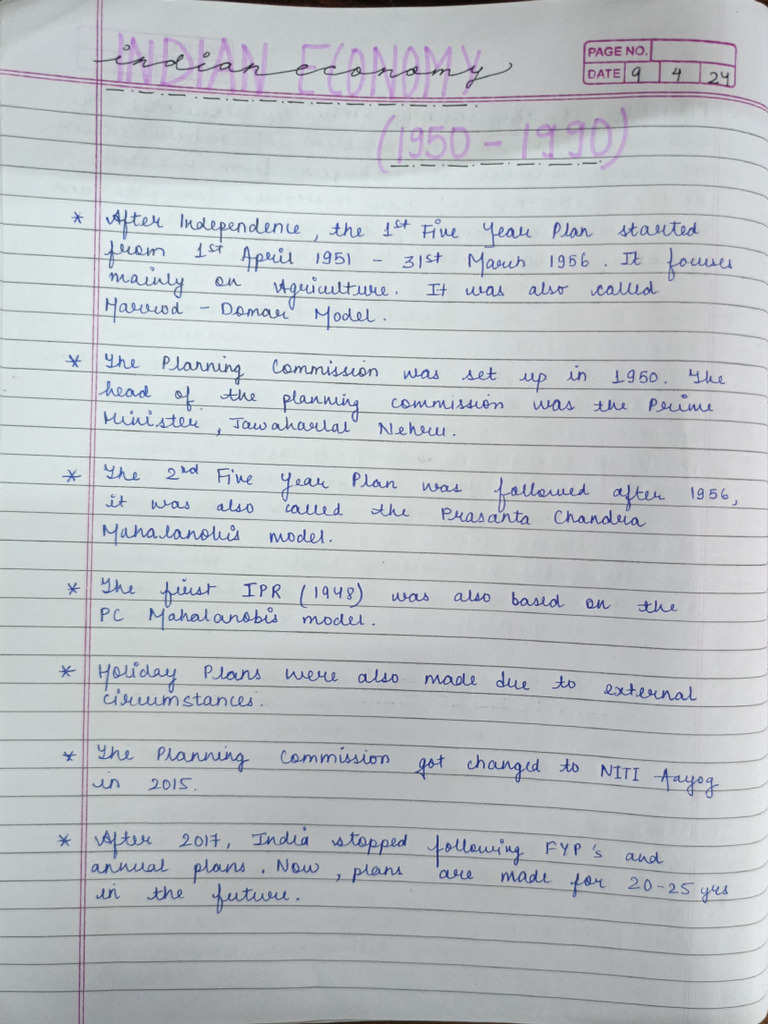 INDIAN ECONOMY
indian economy
PAGE NO.
DATE 9 4 24
(1950 - 1990)
* After Independence, the 1st Five Year Plan started
from 1st April 1951 - 31st March 1956. It focuses
mainly on Agriculture. It was also called
Harrod - Domar Model.
* The Planning Commission was set up in 1950. The
head of the planning commission was the Prime
Minister, Jawaharlal Nehru.
* The 2nd Five Year Plan was followed after 1956,
it was also called the Prasanta Chandra
Mahalanobis model.
* The first IPR (1948) was also based on the
PC Mahalanobis model.
* Holiday Plans were also made due to external
circumstances.
* The Planning Commission got changed to NITI Aayog
in 2015.
* After 2017, India stopped following FYP's and
annual plans. Now, plans are made for 20-25 yrs
in the future.